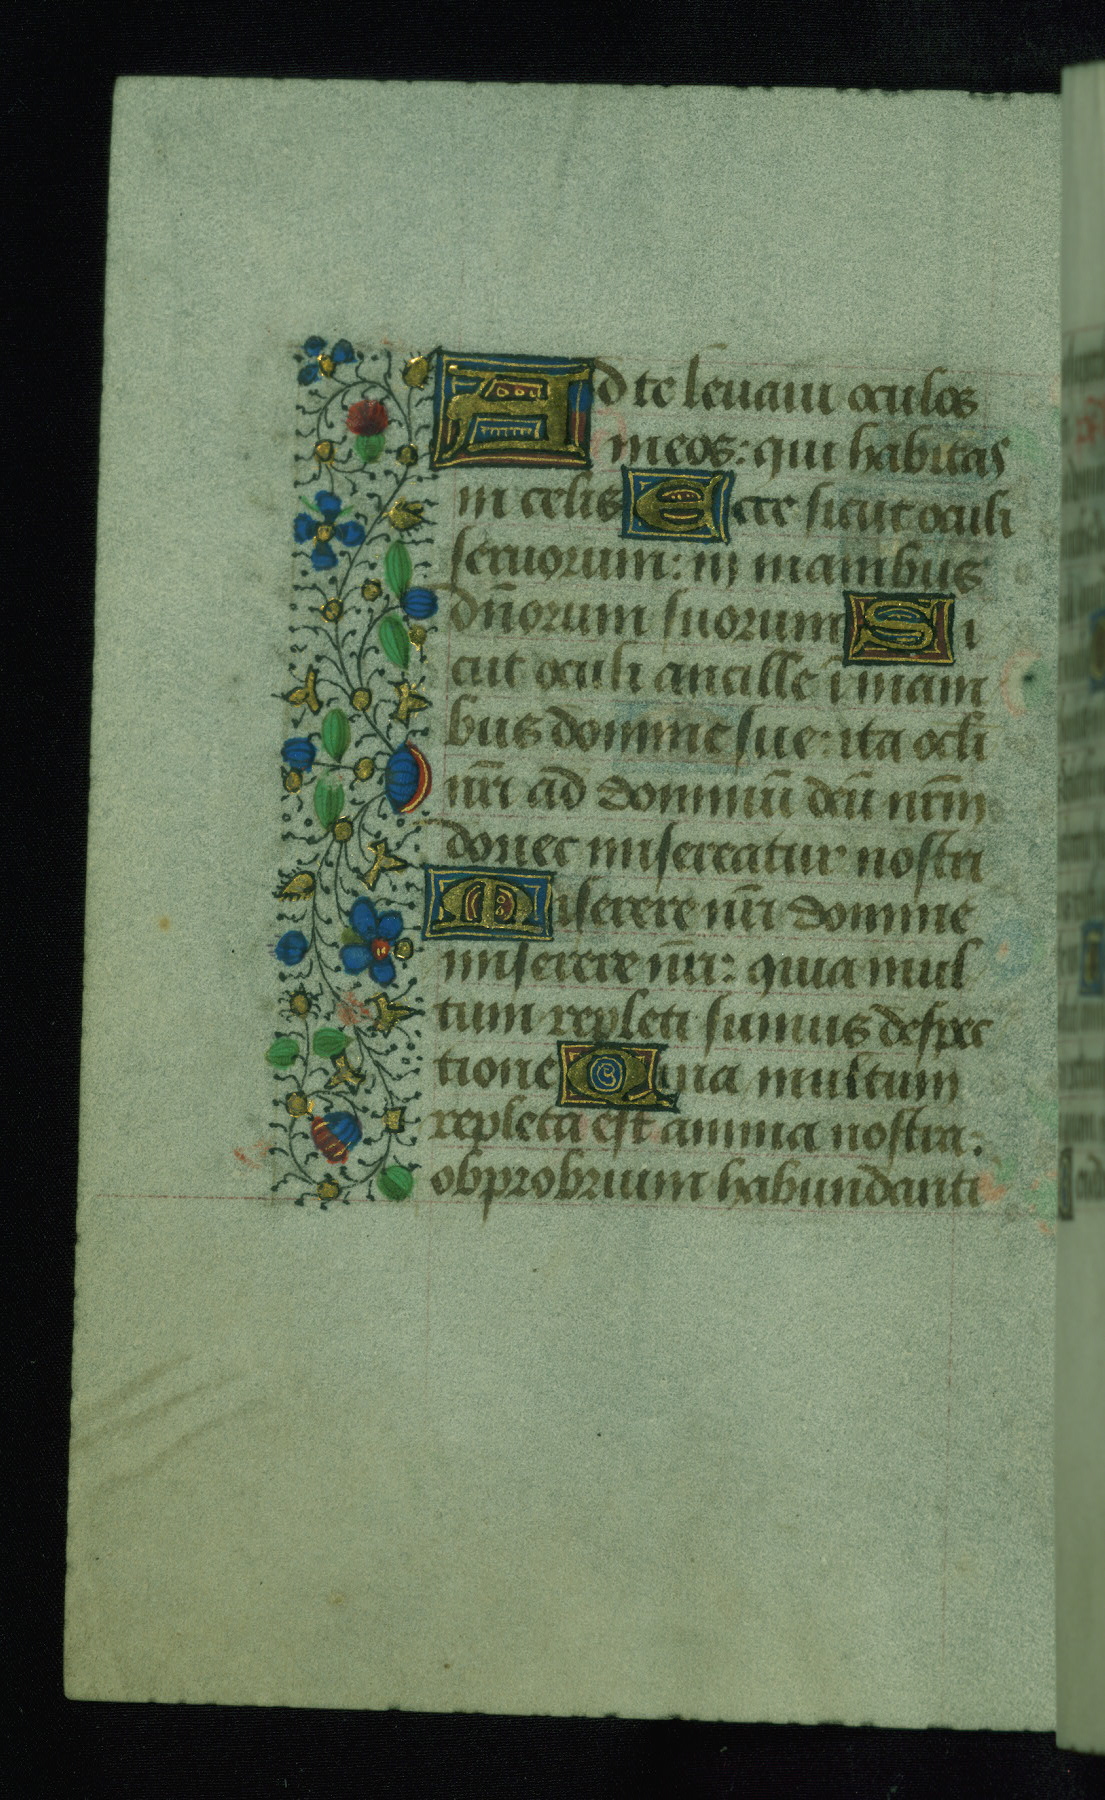 Ad te leuaui oculos
meos: qui habitas
in celis Ecce sicut oculi
seruorum: in manibus
dn̄orum suorum Si
cut oculi ancille ī mani
bus domine sue: ita ocli
nr̄i ad dominū deū nr̄m
donec misereatur nostri
Miserere nr̄i domine
miserere nr̄i: quia mul
tum repleti sumus despec
tione Quia multum
repleta est anima nostra:
obprobrium habundanti